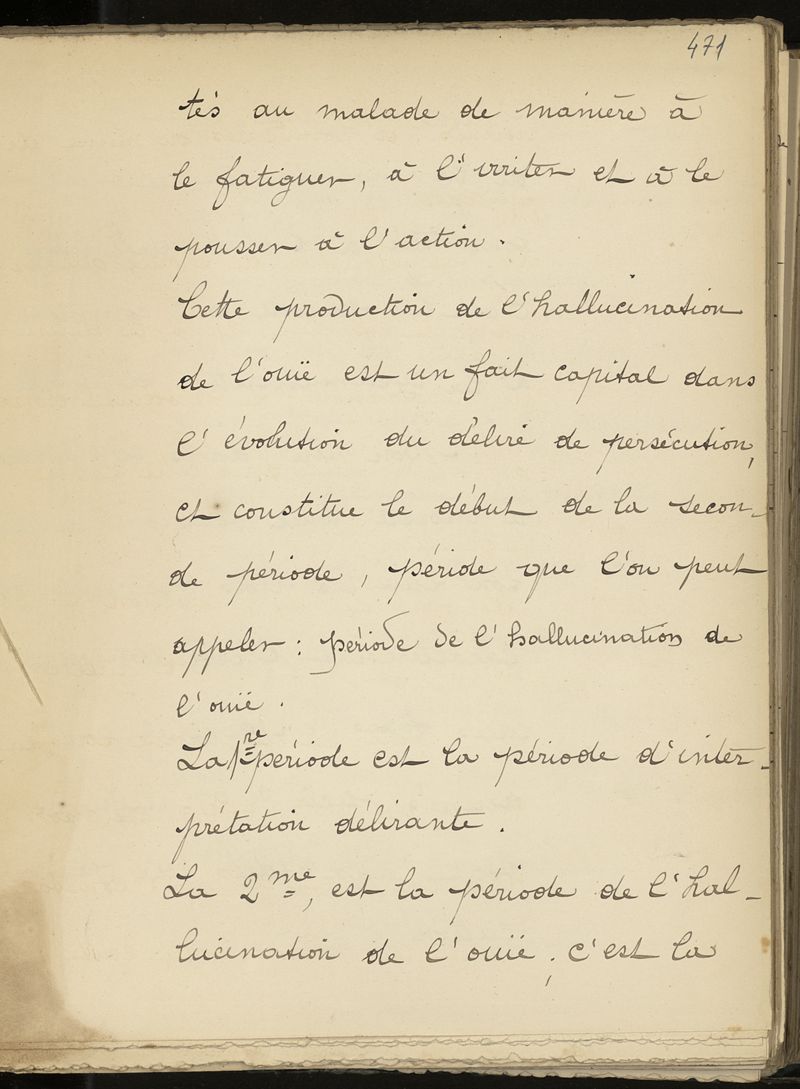 471
tés au malade de manière à
le fatiguer, à l'irriter et à le
pousser à l'action.
Cette production de l'hallucination
de l'ouïe est un fait capital dans
l'évolution du délire de persécution,
et constitue le début de la secon-
de période, période que l'on peut
appeler : période de l'hallucination de
l'ouïe.
La 1re période est la période d'inter-
prétation délirante.
La 2me, est la période de l'hal-
lucination de l'ouïe ; c'est la